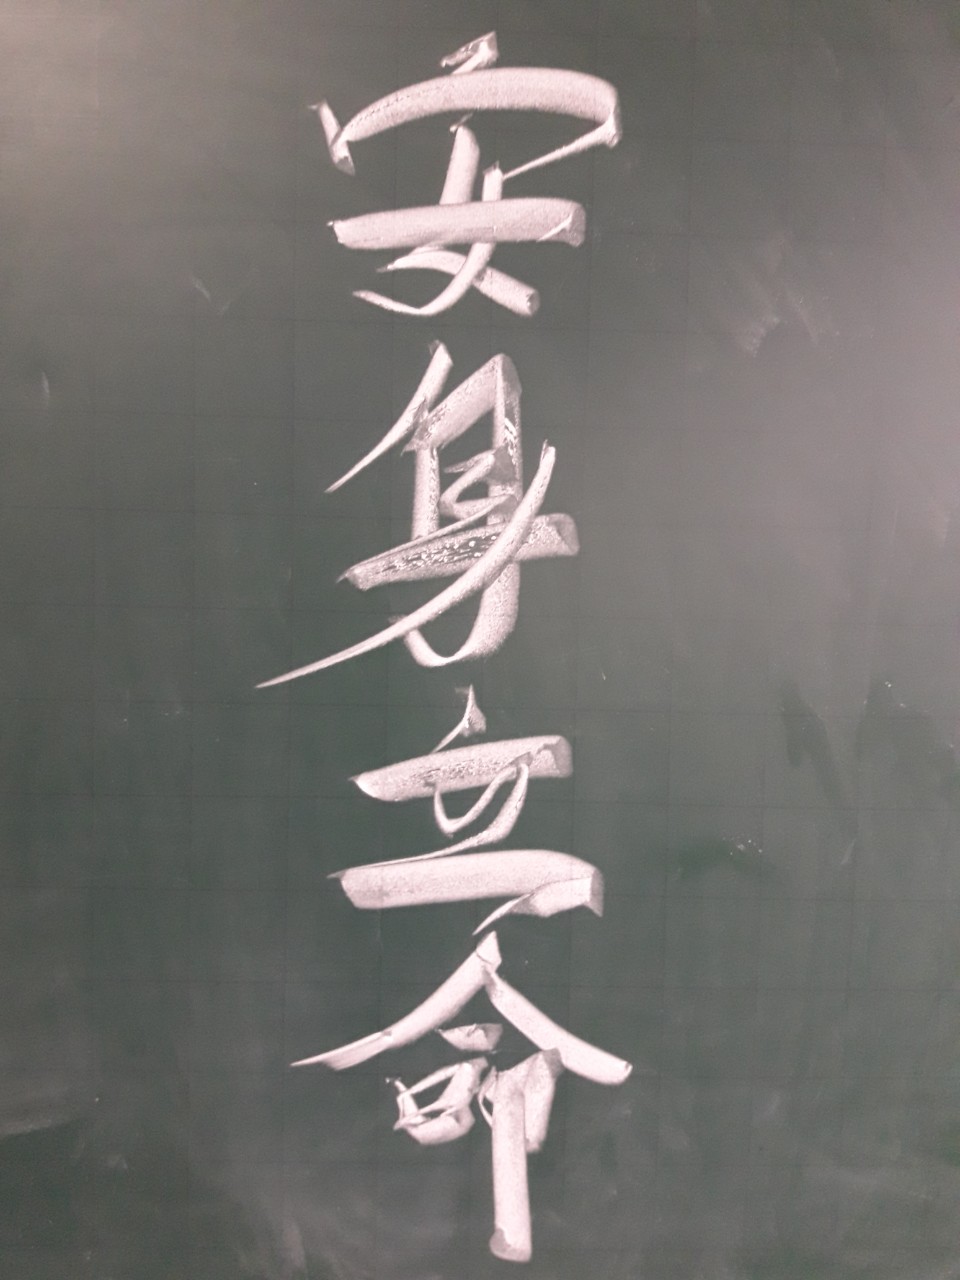 安身立命